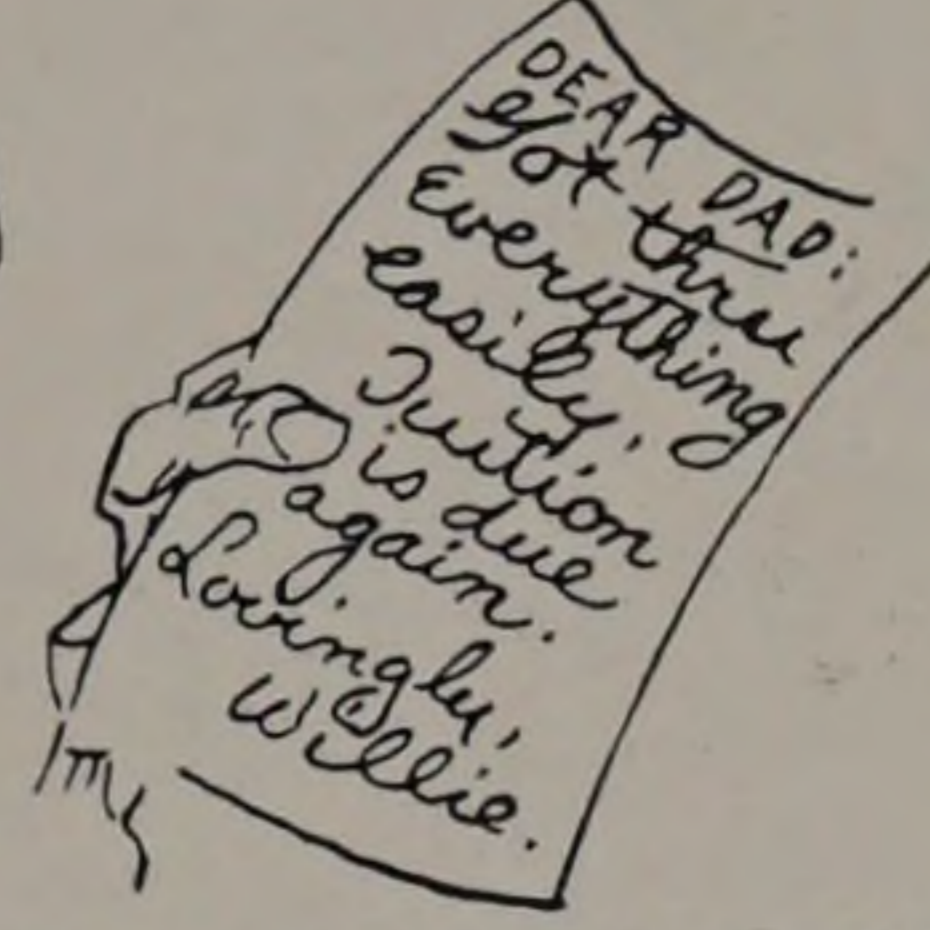 DEAR DAD:
Got thru
Everything
easily.
Tuition
is due
again.
Lovingly,
Willie.